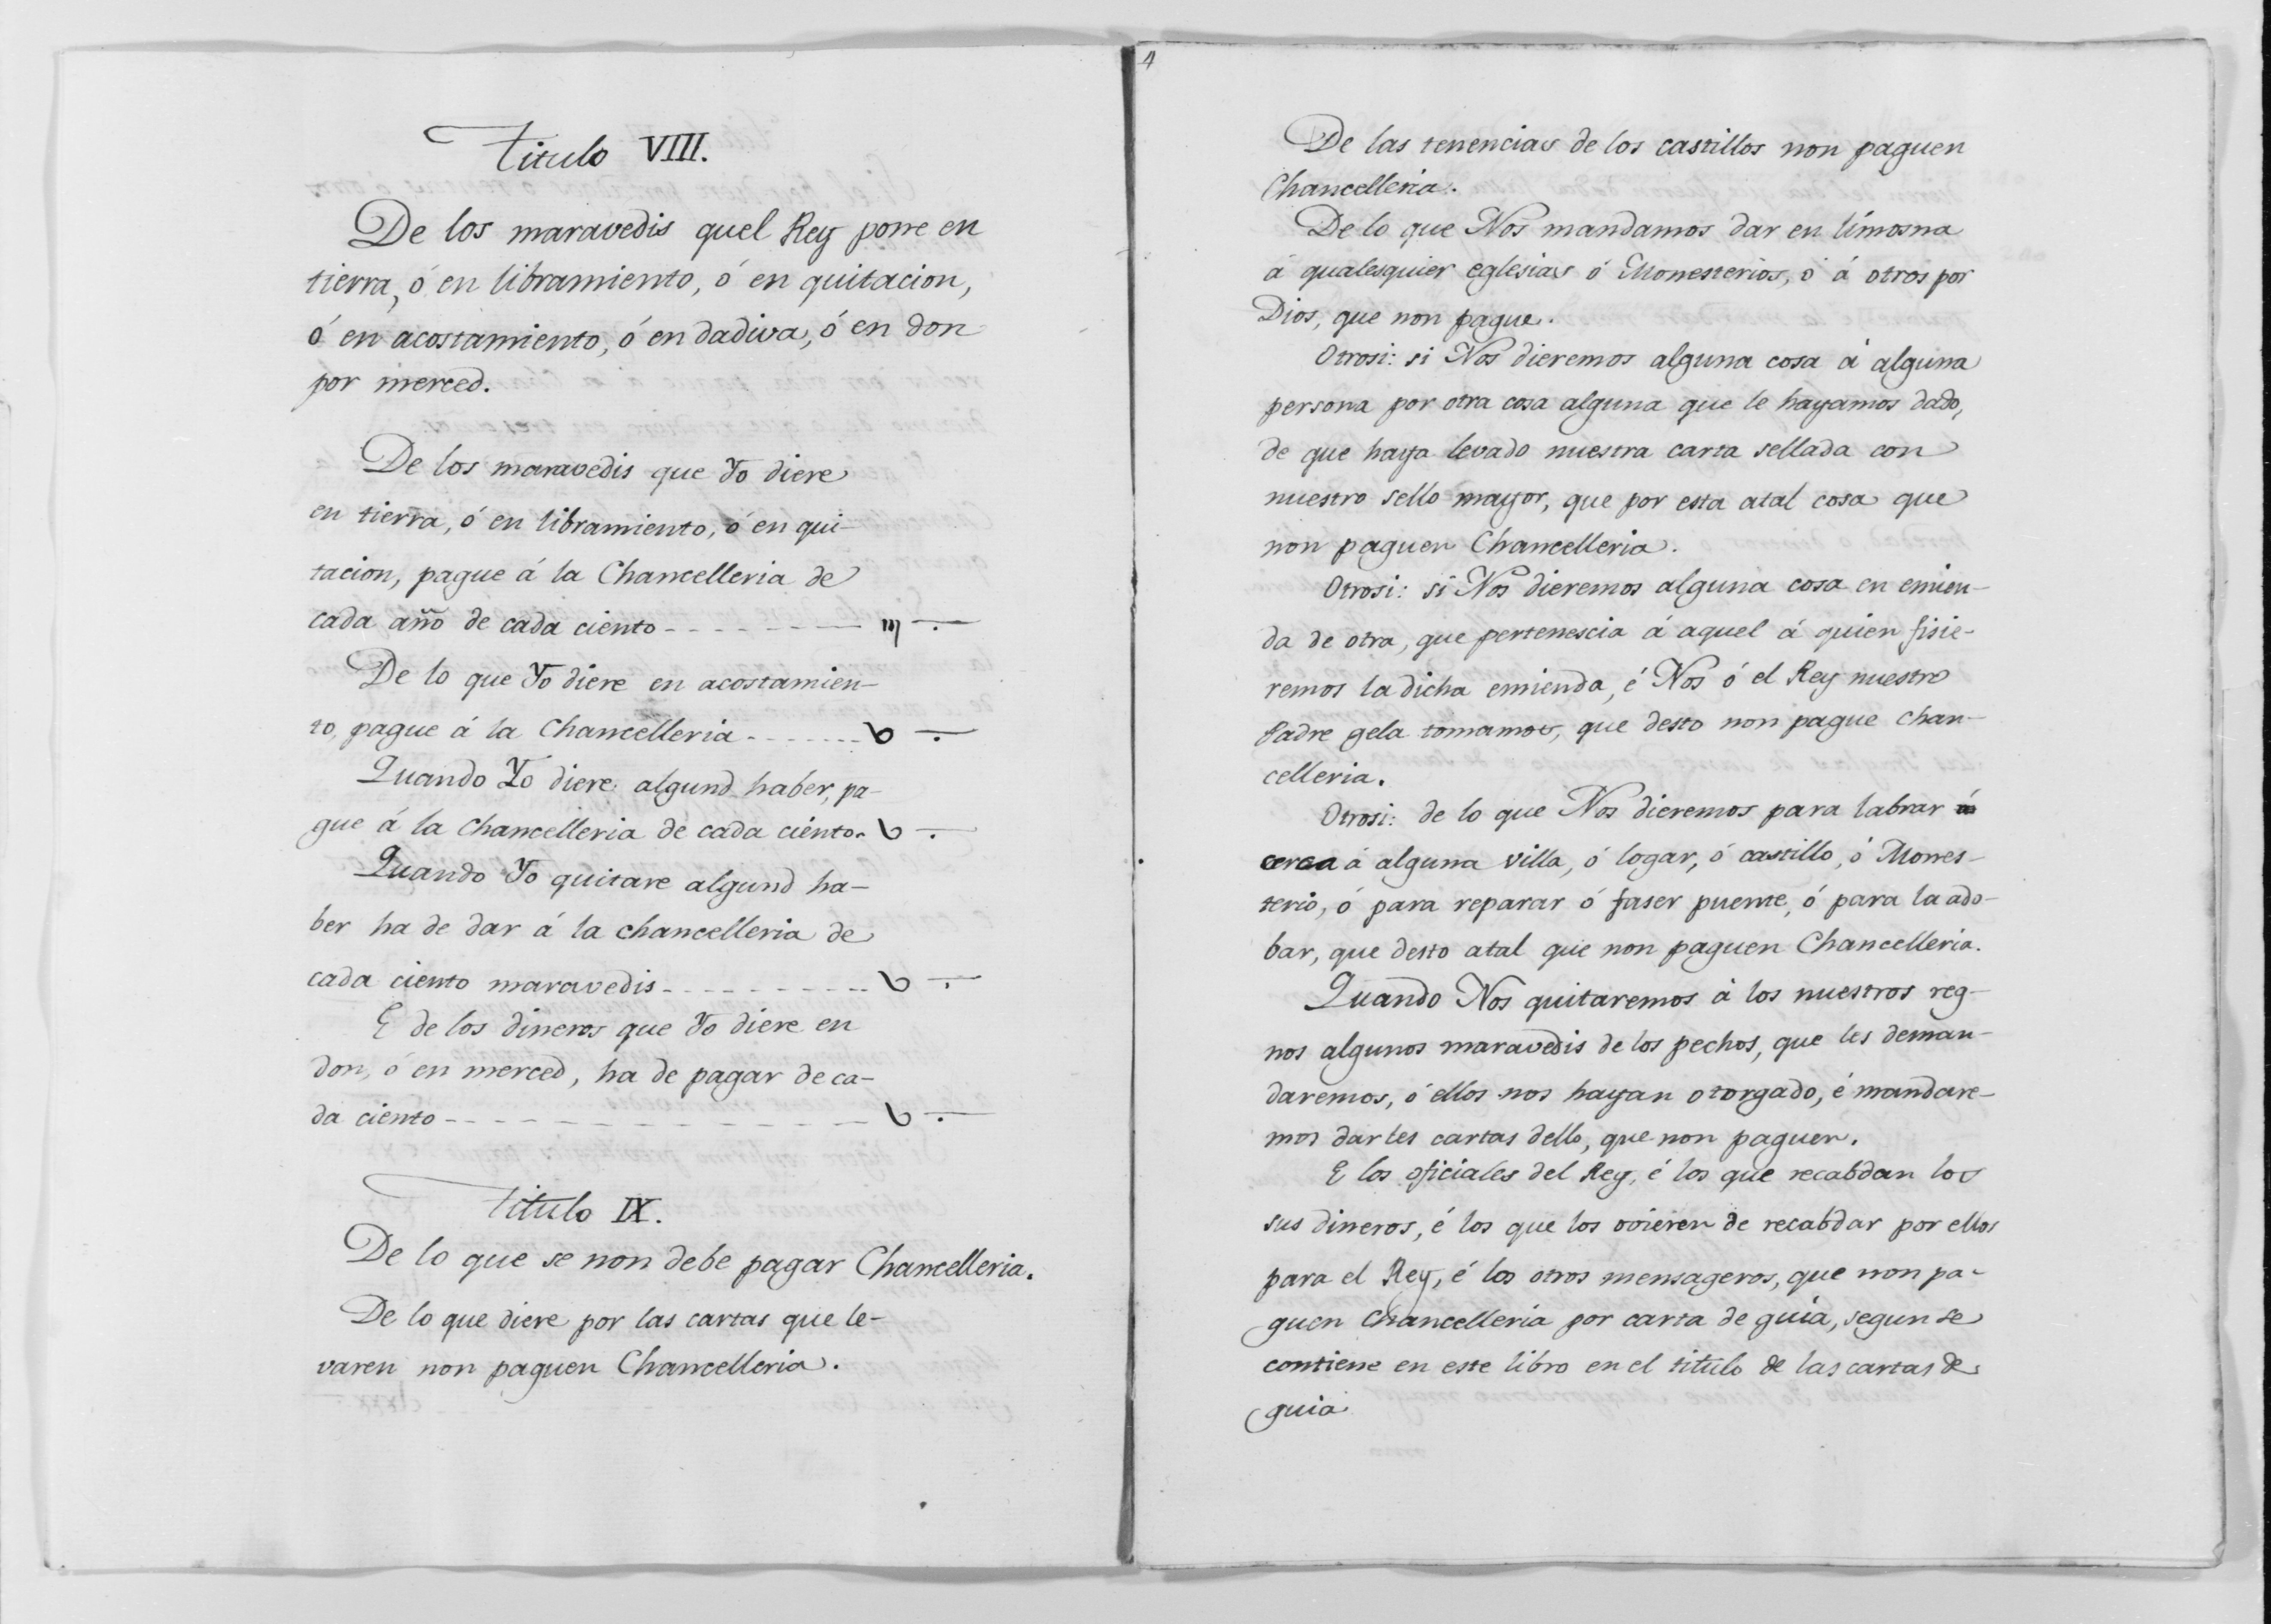 Titulo VIII.
De los maravedis quel Rey pone en
tierra, ó en libramiento, ó en quitacion,
ó en acostamiento, ó en dadiva, ó en don
por merced.
De los maravedis que Yo diere
en tierra, ó en libramiento, ó en qui-
tacion, pague á la Chancelleria de
cada año de cada ciento - - - - - - - - iij -.-
De lo que Yo diere en acostamien-
to, pague á la Chancelleria - - - - - - - b -.-
Quando Yo diere algund haber, pa-
gue á la Chancelleria de cada ciento. b -.-
Quando Yo quitare algund ha-
ber ha de dar á la chancelleria de
cada ciento maravedis - - - - - - - - - b -.-
E de los dineros que Yo diere en
don, ó en merced, ha de pagar de ca-
da ciento - - - - - - - - - - - - - - - b -.-
Titulo IX.
De lo que se non debe pagar Chancelleria.
De lo que diere por las cartas que le-
varen non paguen Chancelleria.
4
De las tenencias de los castillos non paguen
Chancelleria.
De lo que Nos mandamos dar en limosna
á qualesquier eglesias ó Monesterios, ó á otros por
Dios, que non pague.
Otrosi: si Nos dieremos alguna cosa á alguna
persona por otra cosa alguna que le hayamos dado,
de que haya levado nuestra carta sellada con
nuestro sello mayor, que por esta atal cosa que
non paguen Chancelleria.
Otrosi: si Nos dieremos alguna cosa en emien-
da de otra, que pertenescia á aquel á quien fisie-
remos la dicha emienda, é Nos ó el Rey nuestro
Padre gela tomamos, que desto non pague Chan-
celleria.
Otrosi: de lo que Nos dieremos para labrar
cerca á alguna villa, ó logar, ó castillo, ó Mones-
terio, ó para reparar ó faser puente, ó para la ado-
bar, que desto atal que non paguen Chancelleria.
Quando Nos quitaremos á los nuestros reg-
nos algunos maravedis de los pechos, que les deman-
daremos, ó ellos nos hayan otorgado, é mandare-
mos darles cartas dello, que non paguen.
E los oficiales del Rey, é los que recabdan los
sus dineros, é los que los ovieren de recabdar por ellos
para el Rey, é los otros mensageros, que non pa-
guen Chancelleria por carta de guia, segun se
contiene en este libro en el titulo de las cartas de
guia